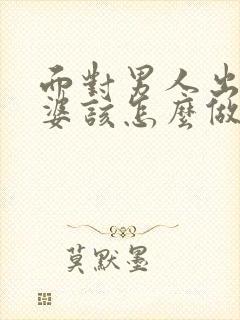 而對男人出
婆該怎麼做
莫默墨